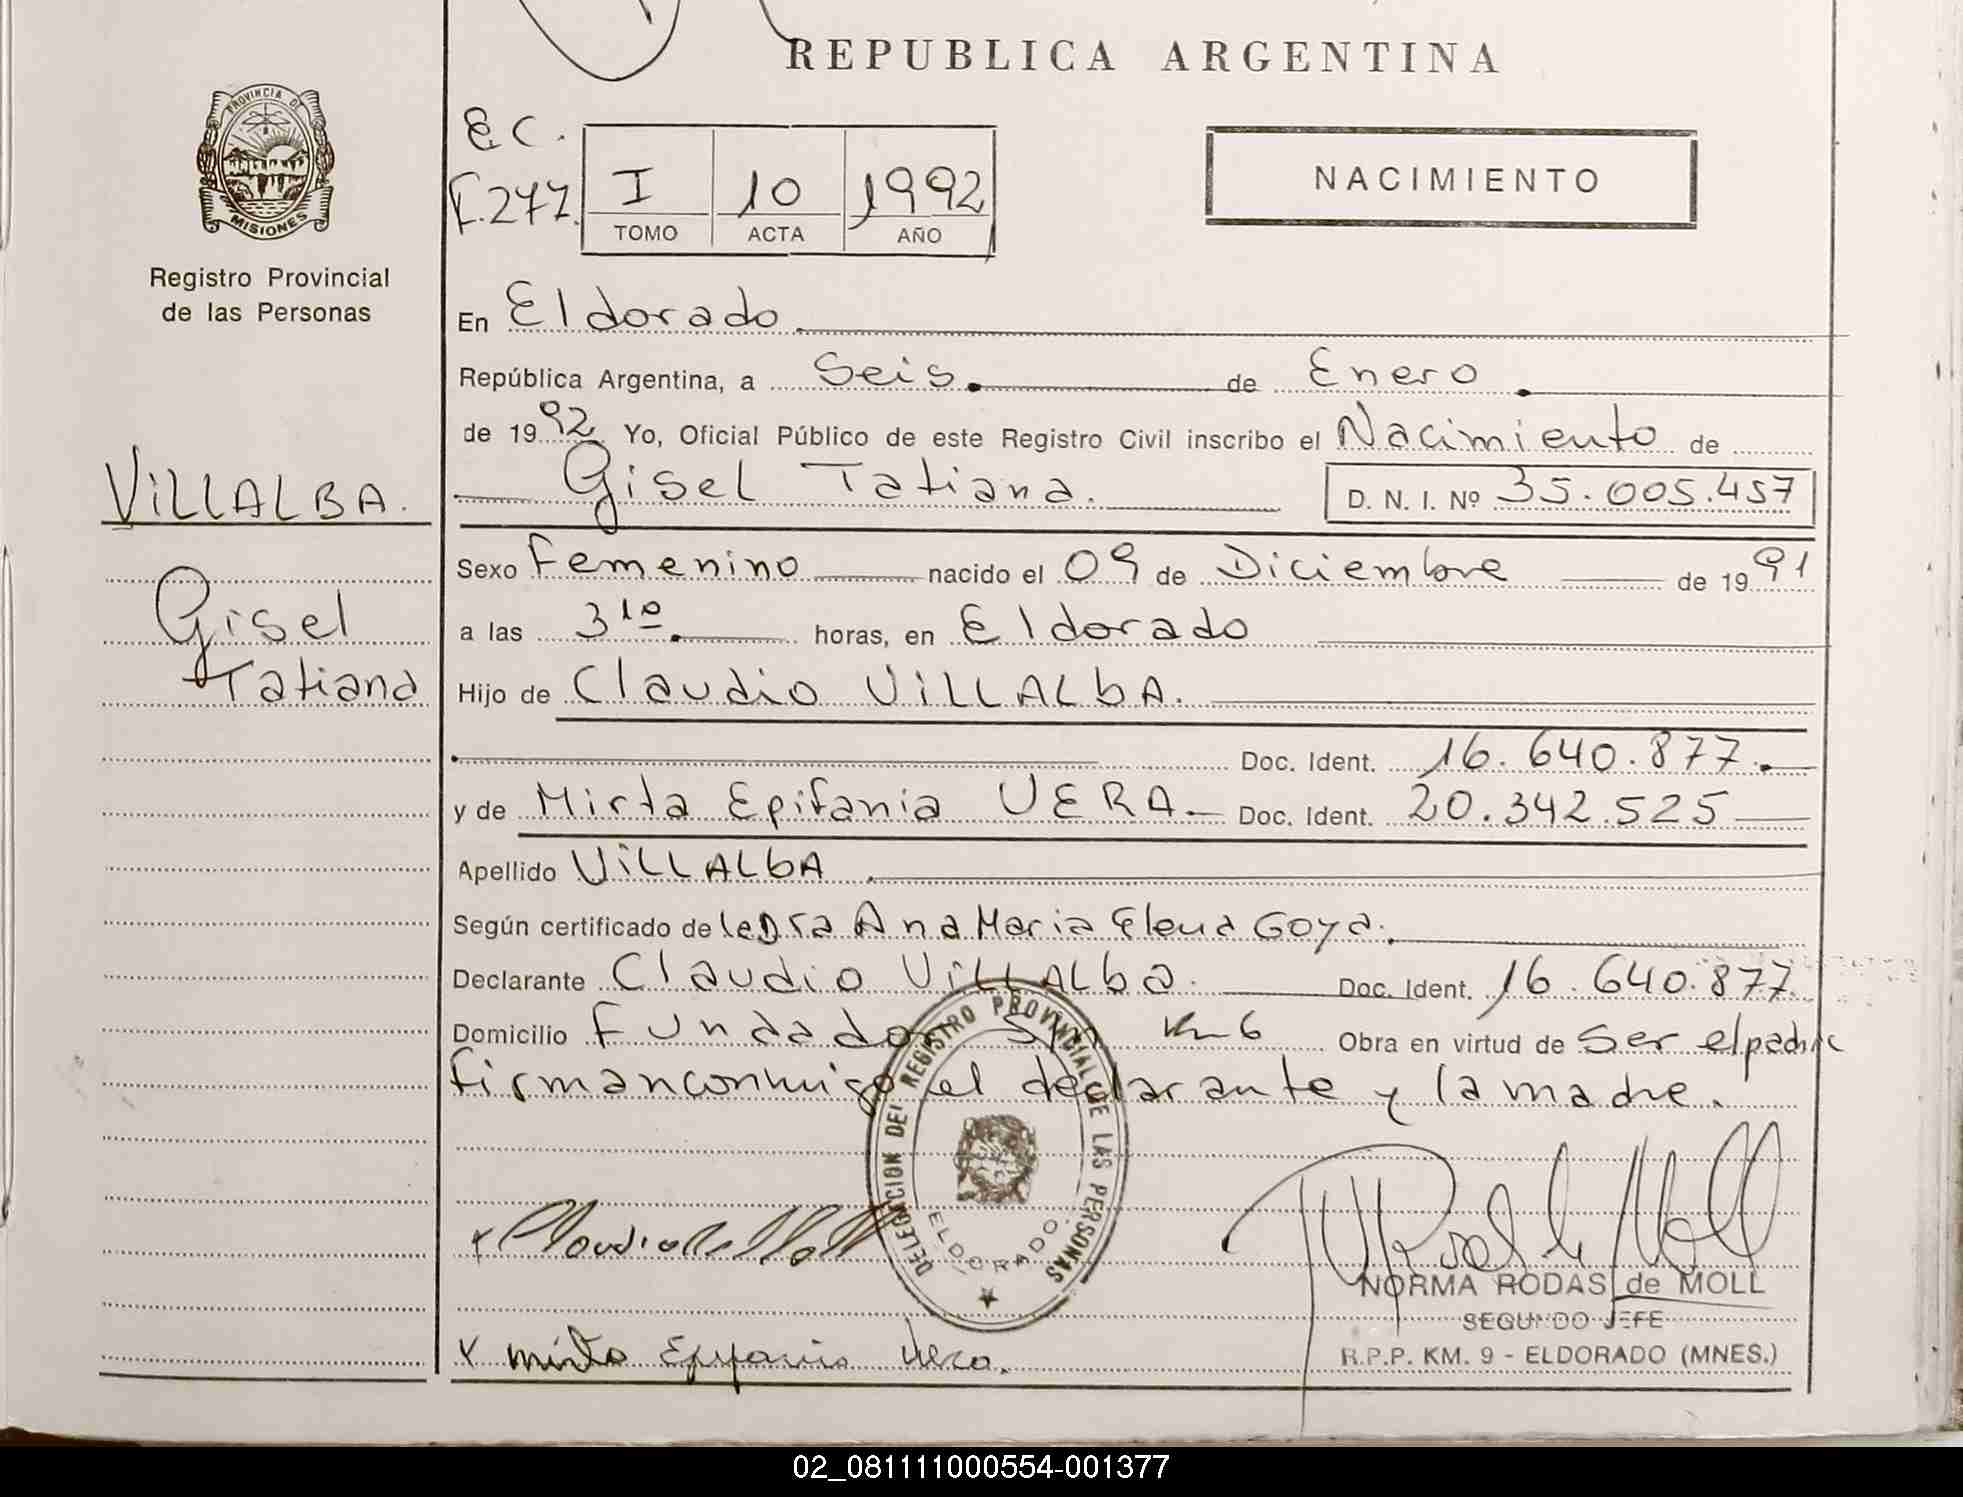 REPUBLICA ARGENTINA
PROVINCIA DE
MISIONES
Registro Provincial
de las Personas
E.C.
F.277.
I 10 1992
TOMO ACTA AÑO
NACIMIENTO
En Eldorado
República Argentina, a Seis. de Enero
de 1992 Yo, Oficial Público de este Registro Civil inscribo el Nacimiento de
Gisel Tatiana. D. N. I. Nº 35.005.457
VILLALBA.
Gisel
Tatiana
Sexo Femenino nacido el 09 de Diciembre de 1991
a las 3 10 horas, en Eldorado
Hijo de Claudio VILLALBA.
Doc. Ident. 16.640.877.
y de Mirta Epifania VERA Doc. Ident. 20.342.525
Apellido VILLALBA
Según certificado de la Dra Ana Maria Elena Goya.
Declarante Claudio VILLALba. Doc. Ident. 16.640.877
Domicilio Fundador s/n Km 6 Obra en virtud de Ser el padre
firman conmigo el declarante y la madre.
DELEGACION DEL REGISTRO PROVINCIAL DE LAS PERSONAS
ELDORADO
x Claudio
NORMA RODAS de MOLL
SEGUNDO JEFE
x mirta Epifania Vera.
R.P.P. KM. 9 - ELDORADO (MNES.)
02_081111000554-001377